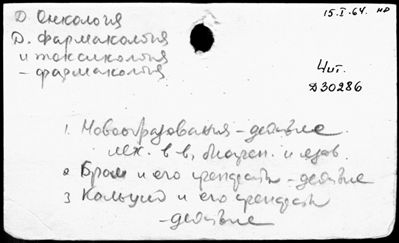 15.I.64. нр
Д Онкология
Д. Фармакология
и токсикология
– фармакология
Чит.
Д30286
1. Новообразования – действие
лек. в в,
2 Бром и его – действие
3 Кальций и его
– действие